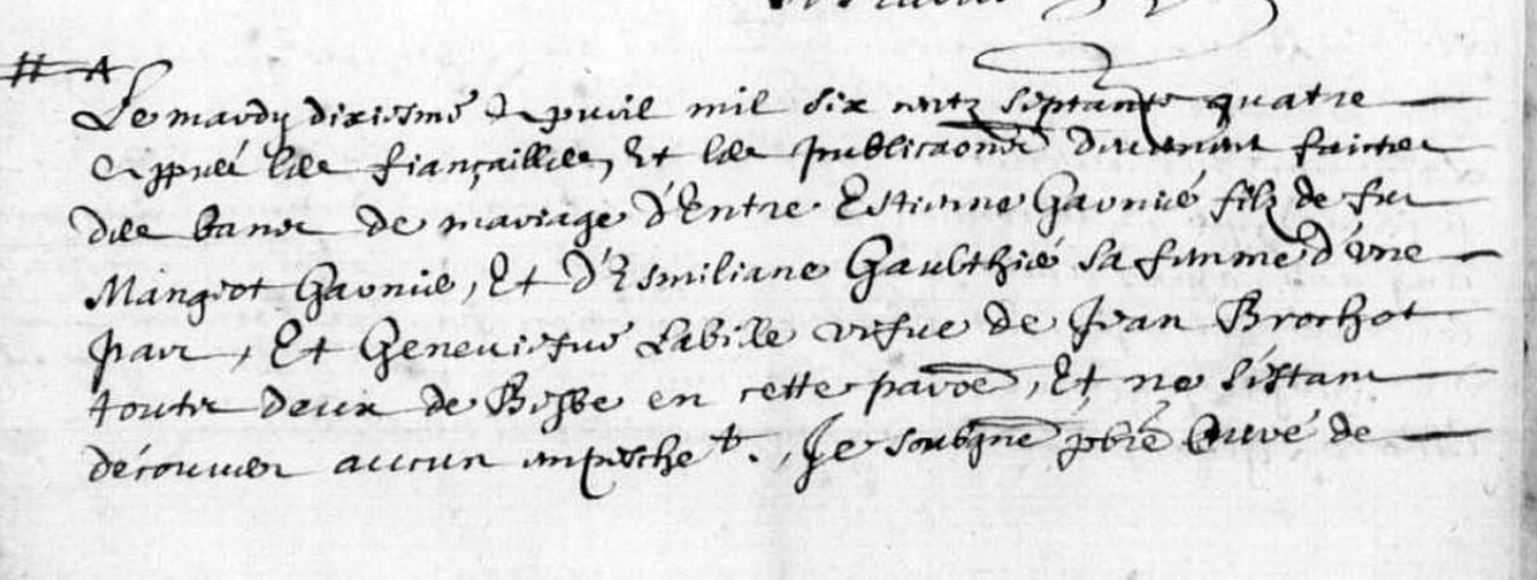 Le mardy dixiesme d'apvril mil six centz septante quatre
Apprés les fiançailles, Et les publicaons deuement faictes
des bans de mariage d'Entre Estienne Garnié filz de feu
Mangeot Garnié, Et d'Esmiliane Gaulthié sa femme d'vne
part, Et Geneuiefue Labille vefue de Jean Brochot
toutz deux de en cette paroe, Et ne s'éstant
découuert aucun empesche t., Je soubgné pbrē Curé de